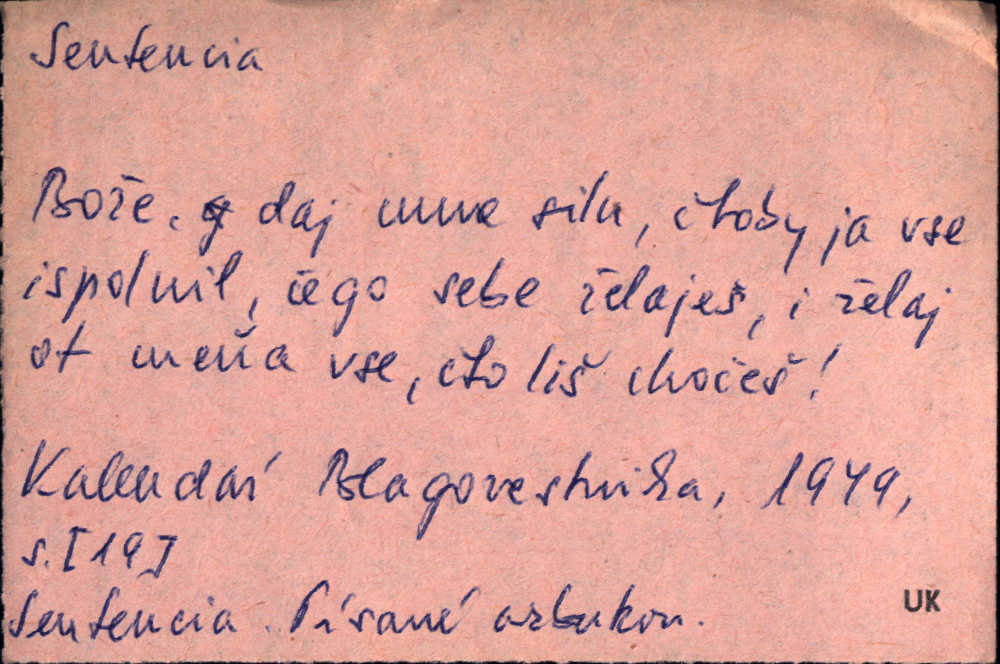 Sentencia
Bože, daj mne silu, čtoby ja vse
ispolnil, čego sebe želaješ, i želaj
ot meňa vse, čto liš chočeš!
Kalendaŕ Blagovestnika, 1949,
s.[19]
Sentencia. Písané azbukou.
UK